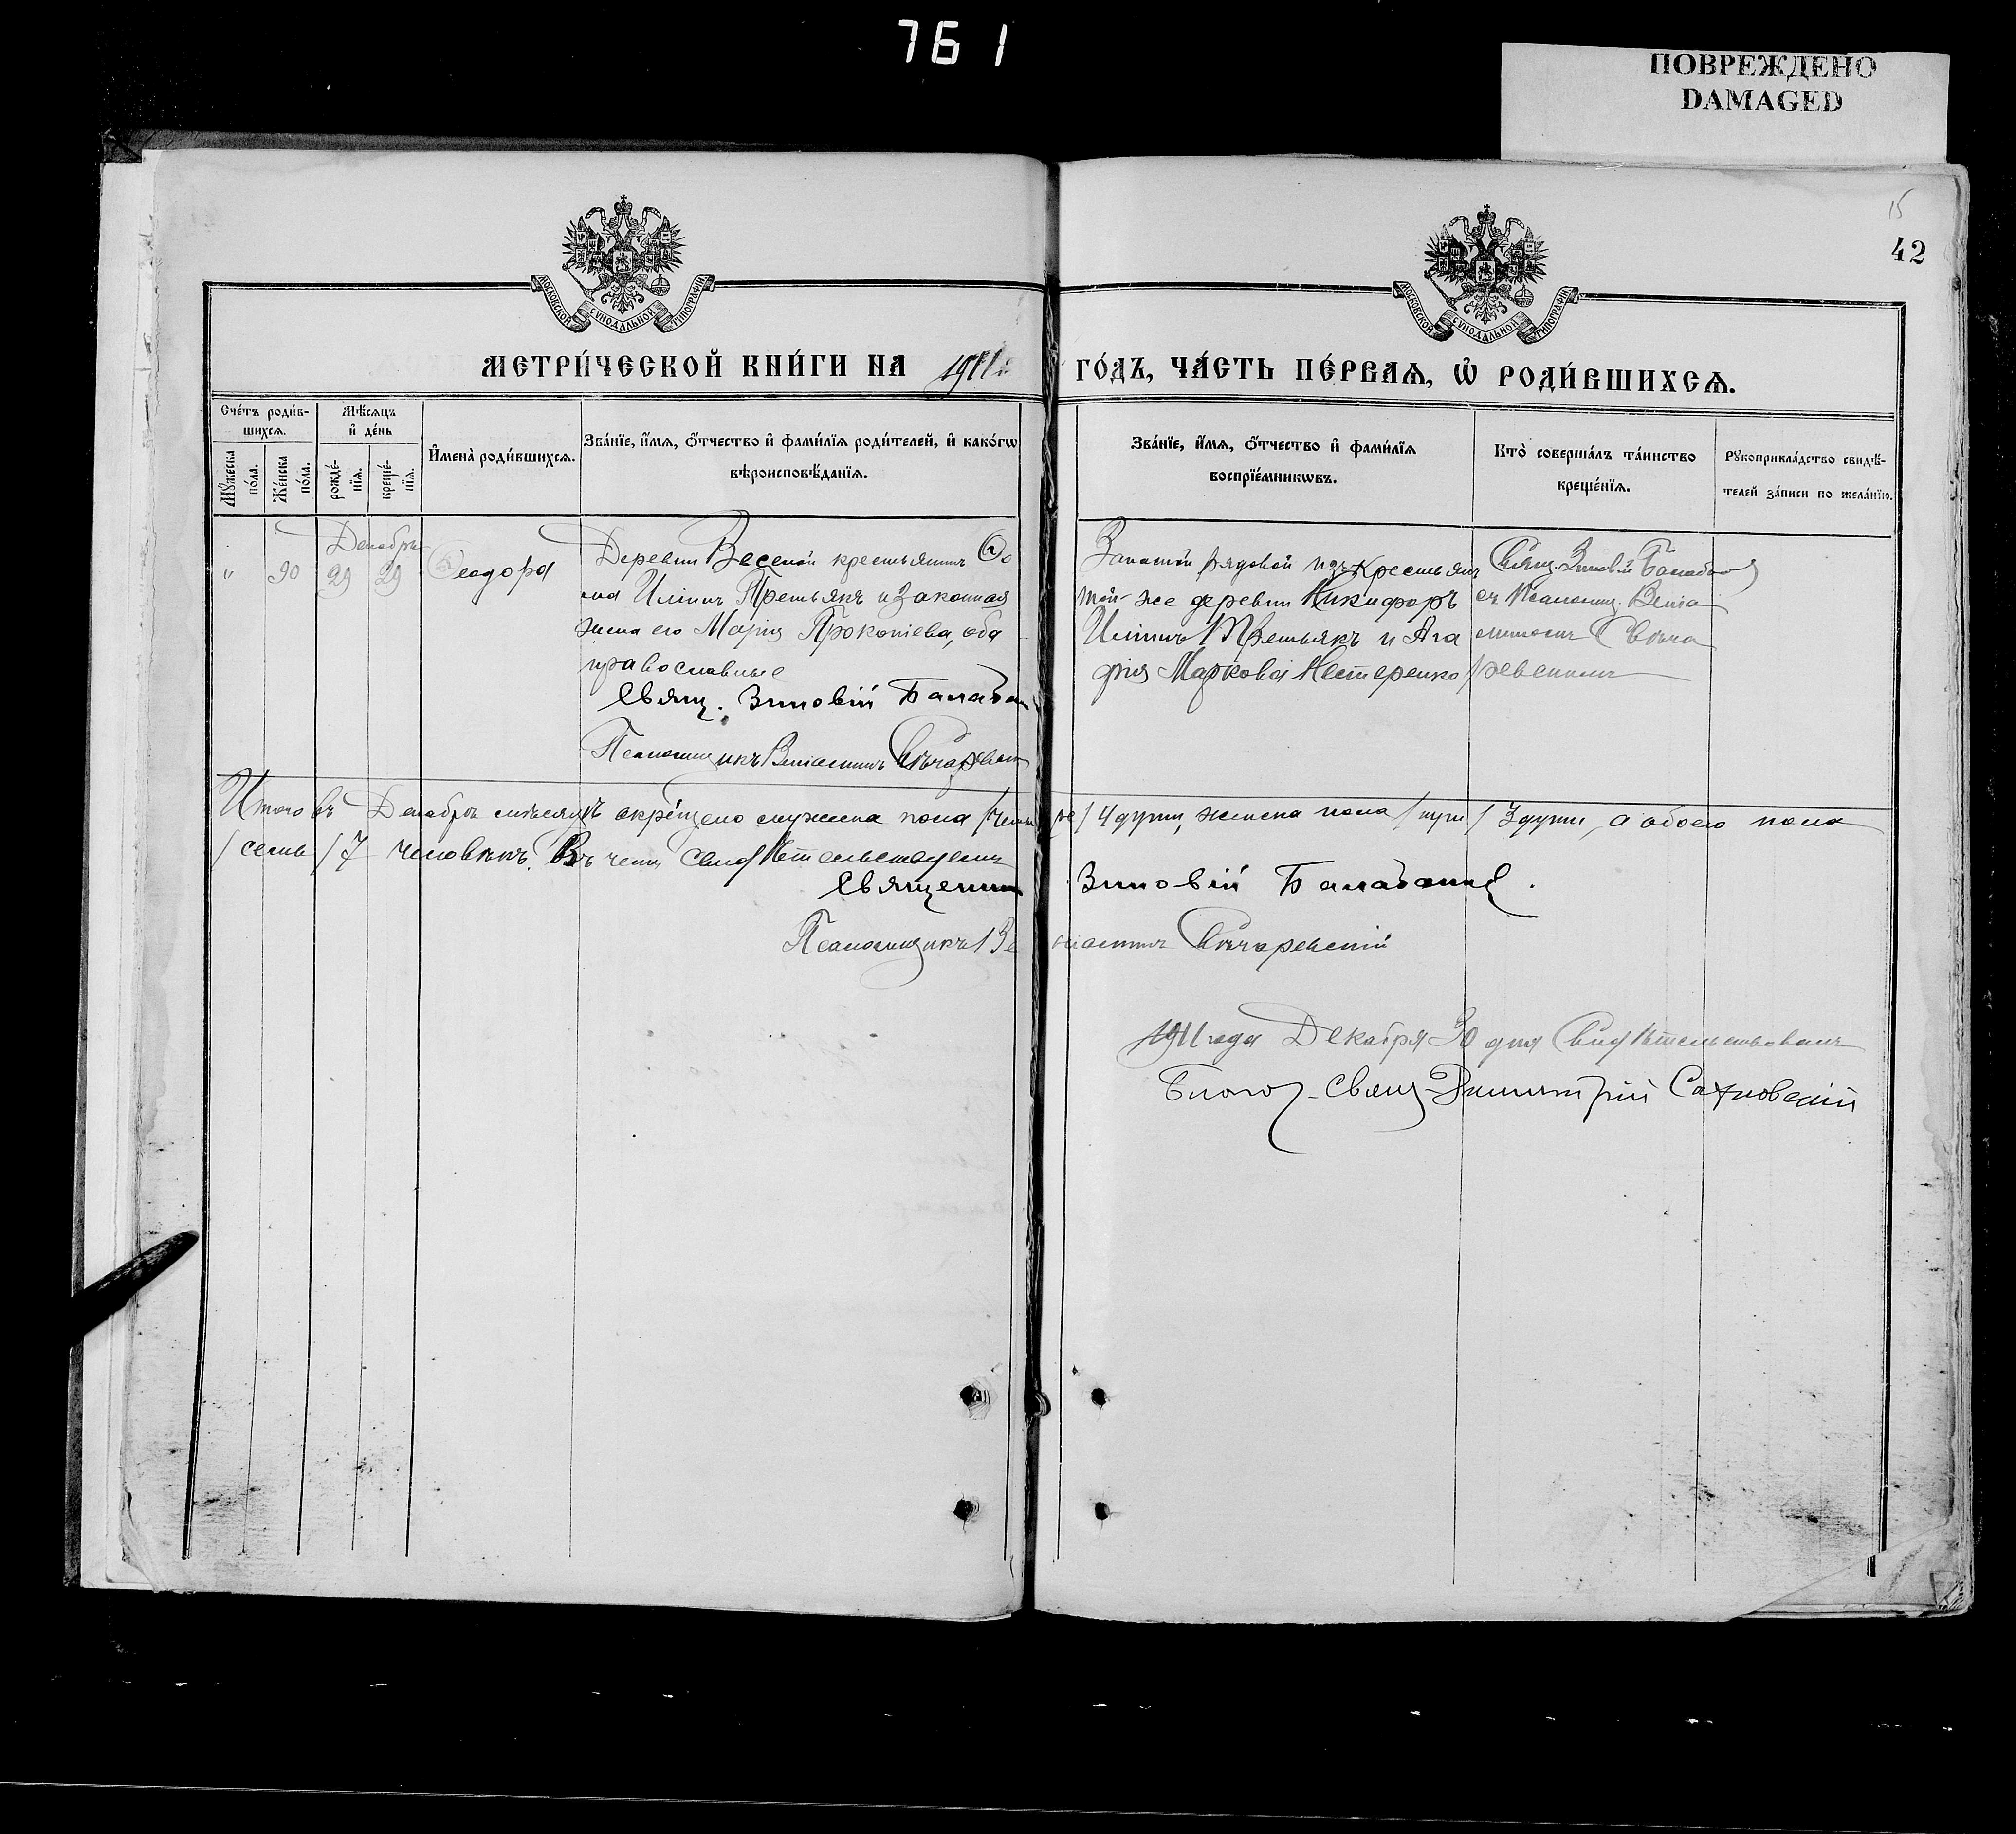 761
ПОВРЕЖДЕНО
DAMAGED
15
42
МОСКОВСКОЙ СУНОДАЛЬНОЙ ТИПОГРАФІИ
МОСКОВСКОЙ СУНОДАЛЬНОЙ ТИПОГРАФІИ
МЕТРИ́ЧЕСКОЙ КНИ́ГИ НА 1911
ГО́ДЪ, ЧА́СТЬ ПЕ́РВАѦ, Ѽ РОДИ́ВШИХСѦ.
Сче́тъ роди́в-
шихсѧ.
Мꙋ́жеска по́ла.
Же́нска по́ла.
Мѣ́сѧцъ
и҆ де́нь
рожде́-
нїѧ.
креще́-
нїѧ.
И҆мена̀ роди́вшихсѧ.
Зва́нїе, и҆́мѧ, ѻ҆́тчество и҆ фами́лїѧ роди́телей, и҆ како́гѡ
вѣроисповѣ́данїѧ.
Зва́нїе, и҆́мѧ, ѻ҆́тчество и҆ фами́лїѧ
воспрїе́мникѡвъ.
Кто̀ соверша́лъ та́инство
креще́нїѧ.
Рꙋкоприкла́дство свидѣ́-
телей за́писи по жела́нїю.
Декабрь
" 30 29 29 Ѳеодора
Деревни Веселой крестьянинъ Ѳо
ма Иліинъ Третьякъ и законная
жена его Марія Прокопіева, оба
православные
Свящ. Зиновій Балабан
Псаломщикъ Веніаминъ
Запасной рядовой изъ крестьянъ
той-же деревни Никифоръ
Иліинъ Третьякъ и Ага
фія Маркова Нестеренко
Свящ. Зиновій Балабан
съ Псаломщ. Веніа
миномъ
Итого въ Декабрѣ мѣсяцѣ окрещено мужеска пола /четыре/ 4 души, женска пола /три/ 3 души, а обоего пола
/семь/ 7 человѣкъ. Въ чемъ свидѣтельствуемъ
Священникъ Зиновій Балабан
Псаломщикъ Веніаминъ
1911 года Декабря 30 дня Свидѣтельствовалъ
Благоч. Свящ. Димитрій Сахновскій